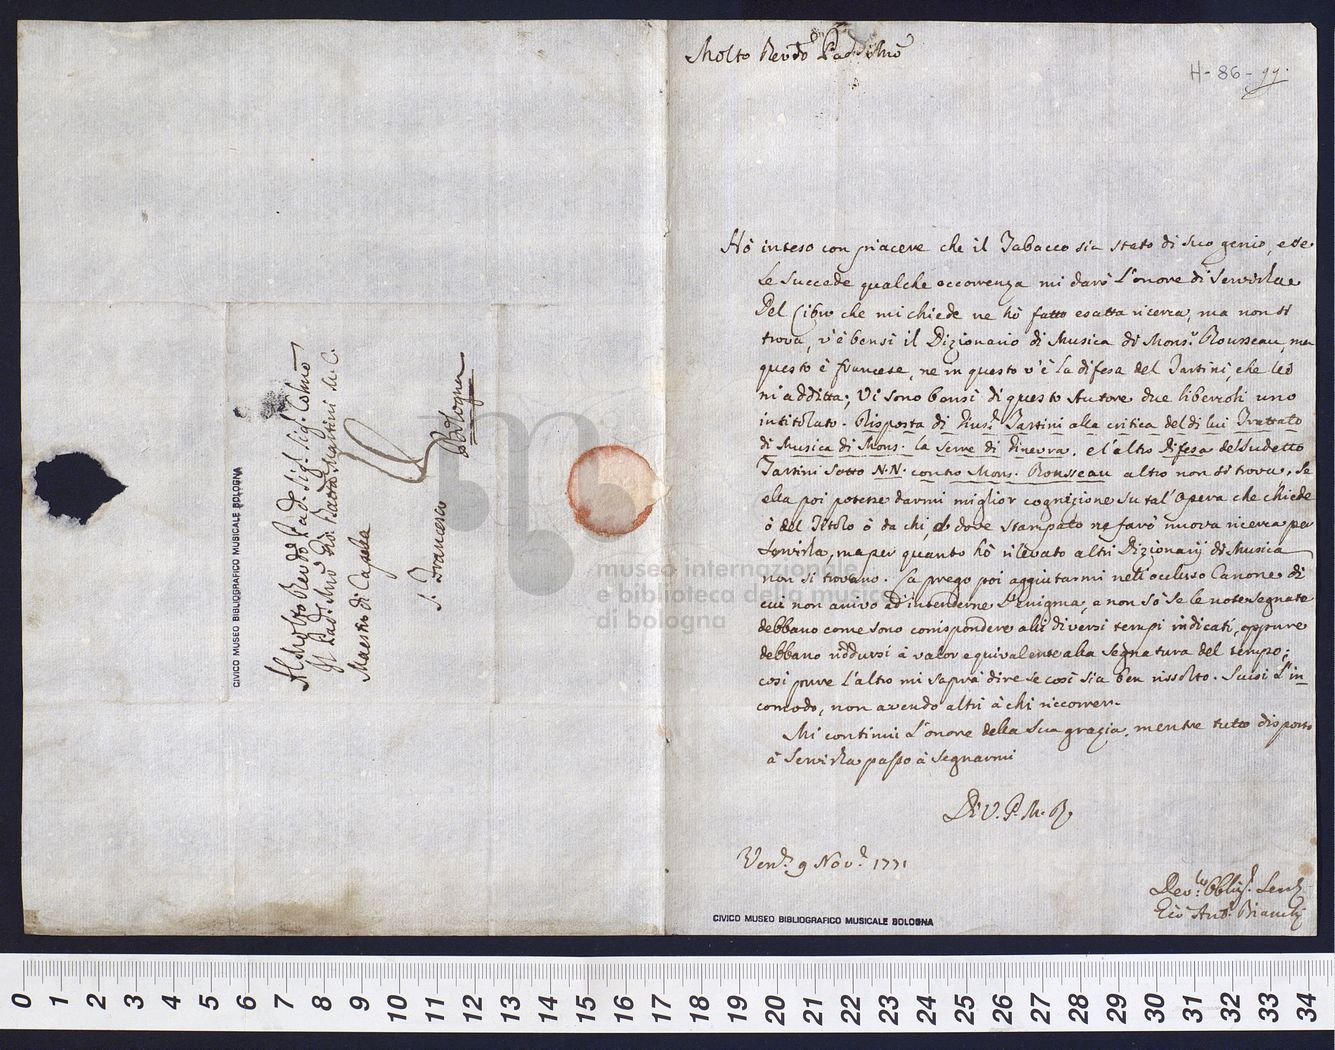 Molto Revdo Pad. Sig.
H- 86 - 99.
Hò inteso con piacere che il Tabacco sia stato di suo genio, e se
le succede qualche occorrenza mi darò l'onore di Servirla
Del Libro che mi chiede ne hò fatto esatta ricerca, ma non si
trova, v'è bensi il Dizionario di Musica di Mons.r Rousseau, ma
questo è francese, ne in questo v'è la difesa del Tartini, che lei
m'additta; Vi sono bensi di questo Autore due libercoli uno
intitolato. Risposta di Gius.e Tartini alla critica del di lui Trattato
di Musica di Mons. la Serre di Ginevra. e l'altro difesa del Sudetto
Tartini Sotto N.N. contro Mons. Rousseau altro non si trova. Se
ella poi potesse darmi miglior cognizione su tal' Opera che chiede
ò del Titolo ò da chi, ò dove stampato ne farò nuova ricerca per
Servirla, ma per quanto hò rilevato altri Dizionarij di Musica
non si trovano. La prego poi aggiutarmi nell'occluso Canone di
cui non arrivo ad intenderne l'enigma, e non sò se le note segnate
debbano come sono corrispondere alli diversi tempi indicati, oppure
debbano ridursi à valor equivalente alla segnatura del tempo;
così pure l'altro mi saprà dire se così sia ben rissolto. Scusi l'in
comodo, non avendo altri à chi ricorrer.
Mi continui l'onore della sua grazia, mentre tutto disposto
à Servirla passo à segnarmi
Di V. P. M. R.
Ven.a 9 Nov.e 1771
Dev.mo Obblig.o Serv.
Gio Ant.o Bianchi
CIVICO MUSEO BIBLIOGRAFICO MUSICALE BOLOGNA
Al Molto Revdo Pad. Sig. Sig. Colmo
Il Pad. Mro Gio: Batta Martini M. C.
Maestro di Capella
S. Francesco
Bologna
CIVICO MUSEO BIBLIOGRAFICO MUSICALE BOLOGNA
museo internazionale
e biblioteca della musica
di bologna
0 1 2 3 4 5 6 7 8 9 10 11 12 13 14 15 16 17 18 19 20 21 22 23 24 25 26 27 28 29 30 31 32 33 34